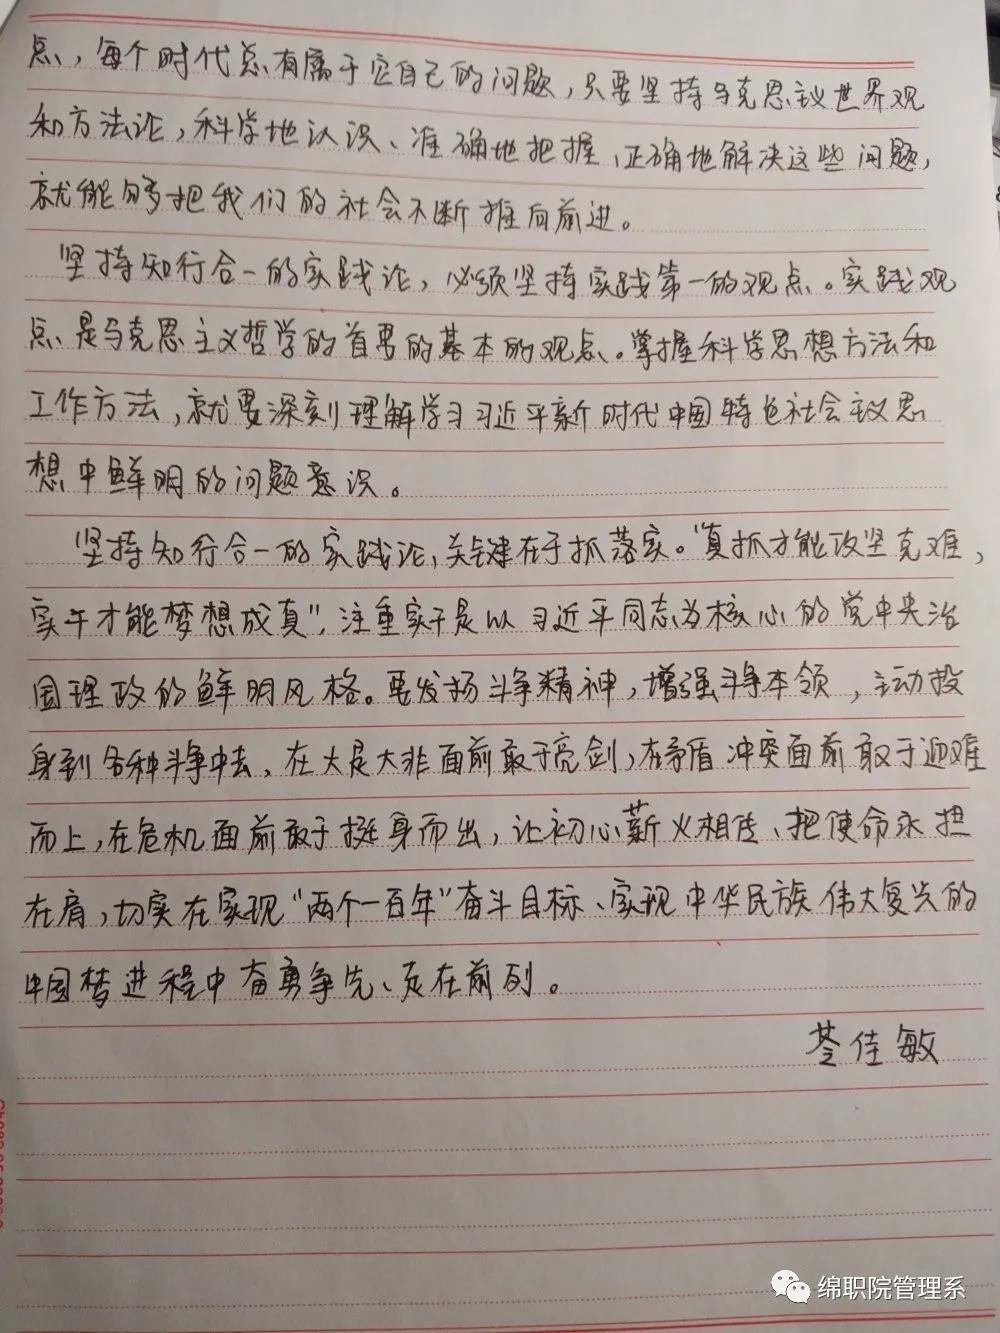 点，每个时代总有属于它自己的问题，只要坚持马克思主义世界观
和方法论，科学地认识、准确地把握、正确地解决这些问题，
就能够把我们的社会不断推向前进。
坚持知行合一的实践论，必须坚持实践第一的观点。实践观
点是马克思主义哲学的首要的基本的观点。掌握科学思想方法和
工作方法，就要深刻理解学习习近平新时代中国特色社会主义思
想中鲜明的问题意识。
坚持知行合一的实践论，关键在于抓落实。“真抓才能攻坚克难，
实干才能梦想成真”，注重实干是以习近平同志为核心的党中央治
国理政的鲜明风格。要发扬斗争精神，增强斗争本领，主动投
身到各种斗争中去，在大是大非面前敢于亮剑，在矛盾冲突面前敢于迎难
而上，在危机面前敢于挺身而出，让初心薪火相传、把使命永担
在肩，切实在实现“两个一百年”奋斗目标、实现中华民族伟大复兴的
中国梦进程中奋勇争先、走在前列。
佳敏
绵职院管理系